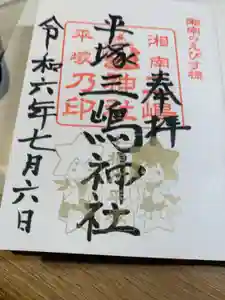 湘南のえびす様
奉拝
平塚三嶋神社
令和六年七月六日
平塚乃印